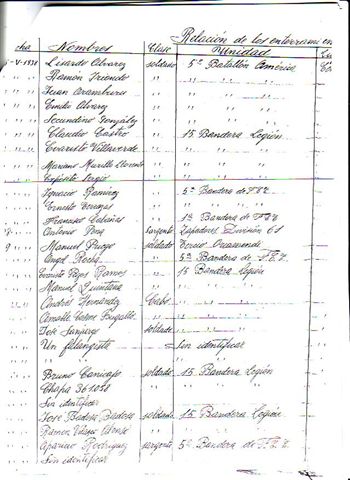 Relación de los enterramien
cha Nombres Clase Unidad
-V-1938 Lisardo Alvarez soldado 5º Batallón América
" " Ramón Iriondo " " " "
" " Juan Aramburu " " " "
" " Emilio Alvarez " " " "
" " Secundino González " " " "
" " Claudio Castro " 15 Bandera Legión
" " Evaristo Villaverde " " " "
" " Mariano Murillo Llorente " " " "
" " Expósito Sergio " " " "
" " Ignacio Ramírez " 5ª Bandera de F.E.T.
" " Ernesto " " " "
" " Francisco Cabañas " 1ª Bandera de F.E.T.
8 " Antonio Pena sargento Zapadores División 61
9 " Manuel Puego soldado Tercio Oriamendi
" " Angel " 5ª Bandera de F.E.T.
" " Evaristo Ramos " 15 Bandera Legión
" " Manuel Quintana " " "
" " Andrés Hernández Cabo " "
" " Amable Bugallo " " "
" " José Sanjurjo soldado " "
" " Un falangista " Sin identificar
" " " " "
" " Bruno Canicajo soldado 15 Bandera Legión
" " Chapa 361052 " "
" " Sin identificar " "
" " José Badose Badose soldado 15 Bandera Legión
" " Ramón " " "
" " Aparicio Rodríguez sargento 5ª Bandera de F.E.T.
" " Sin identificar